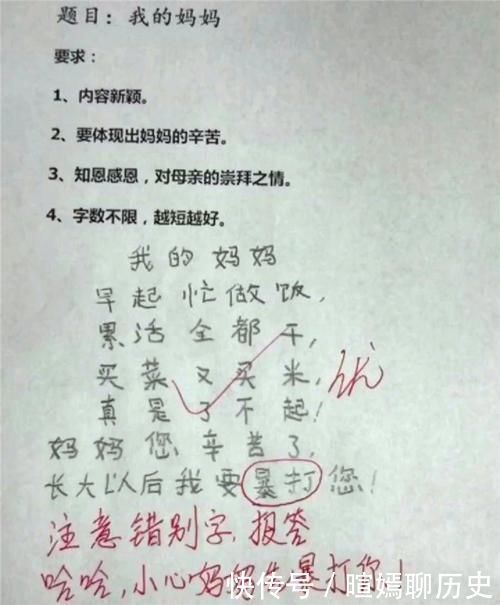 题目：我的妈妈
要求：
1、内容新颖。
2、要体现出妈妈的辛苦。
3、知恩感恩，对母亲的崇拜之情。
4、字数不限，越短越好。
我的妈妈
早起忙做饭，
累活全都干，
买菜又买米，
真是了不起！
优
妈妈您辛苦了，
长大以后我要暴打您！
注意错别字，报答
哈哈，小心妈妈先暴打你！
快传号／暄嫣聊历史